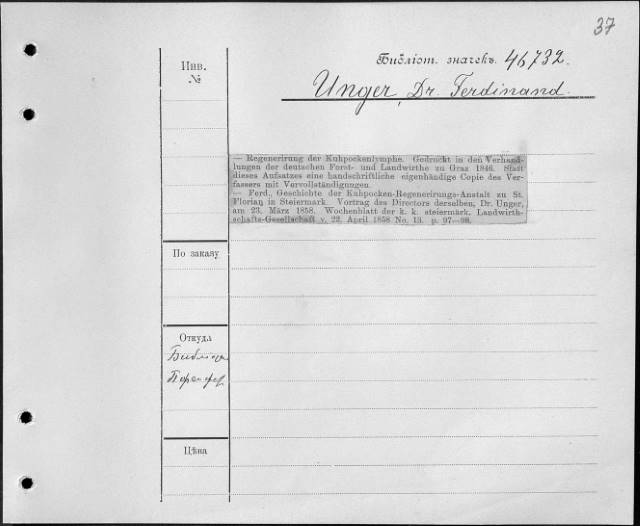 37
Библіот. значекъ 46732.
Инв.
№
Unger, Dr. Ferdinand.
— Regenerirung der Kuhpockenlymphe. Gedruckt in den Verhand-
lungen der deutschen Forst- und Landwirthe zu Graz 1846. Statt
dieses Aufsatzes eine handschriftliche eigenhändige Copie des Ver-
fassers mit Vervollständigungen.
— Ferd., Geschichte der Kuhpocken-Regenerirungs-Anstalt zu St.
Florian in Steiermark. Vortrag des Directors derselben, Dr. Unger,
am 23. März 1858. Wochenblatt der k. k. steiermärk. Landwirth-
schafts-Gesellschaft v. 22. April 1858 No. 13. p. 97—98.
По заказу
Откуда
Цѣна